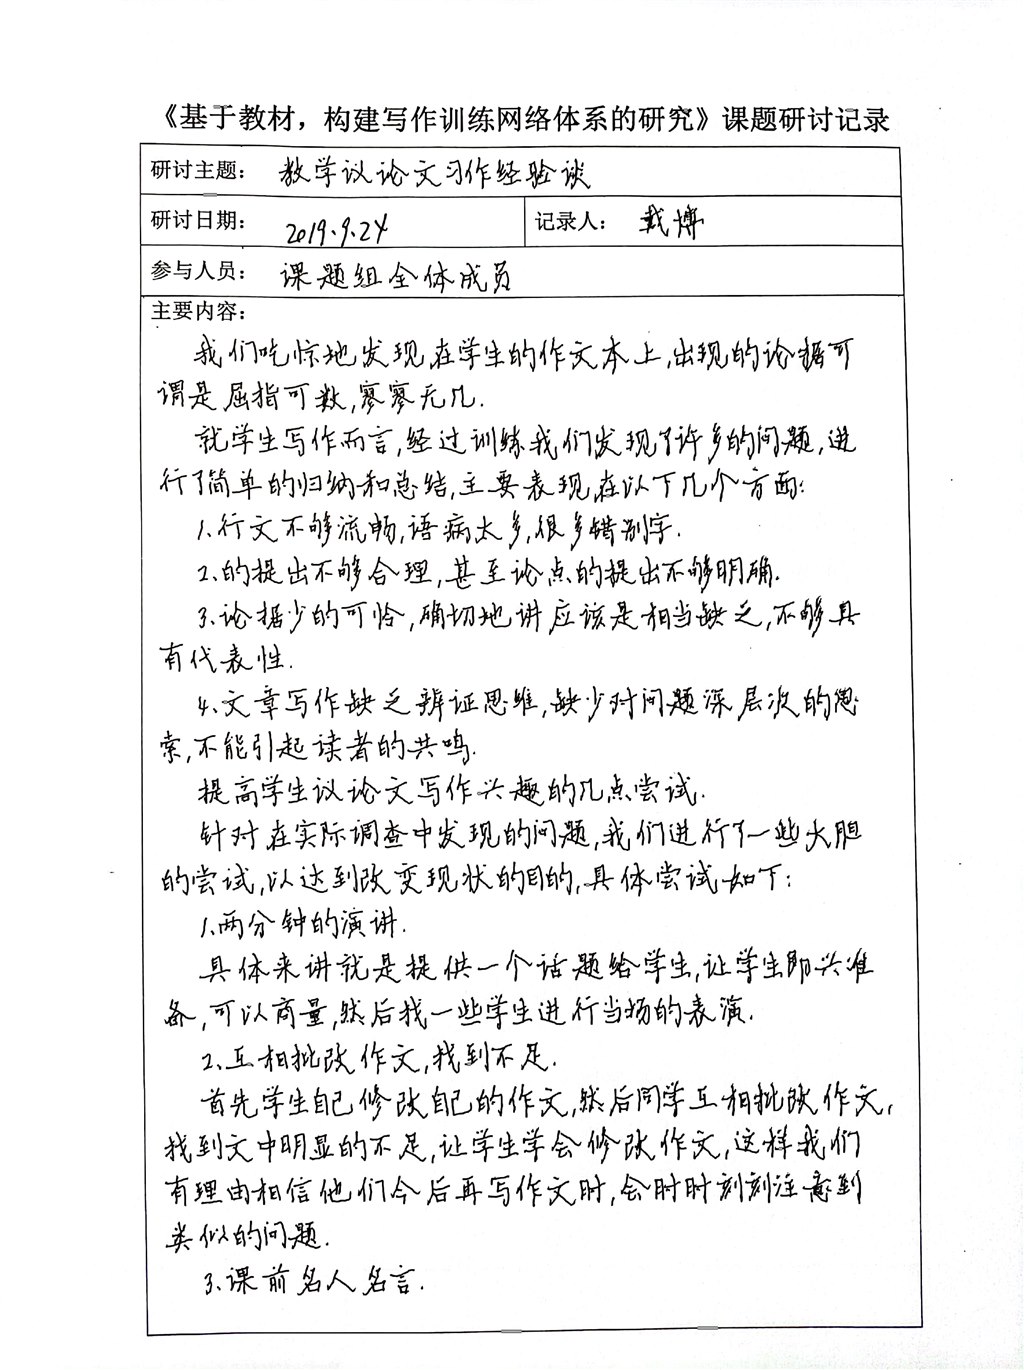 《基于教材，构建写作训练网络体系的研究》课题研讨记录
研讨主题： 教学议论文习作经验谈
研讨日期： 2019.9.24 记录人： 戴博
参与人员： 课题组全体成员
主要内容：
我们吃惊地发现,在学生的作文本上,出现的论据可
谓是屈指可数,寥寥无几.
就学生写作而言,经过训练我们发现了许多的问题,进
行了简单的归纳和总结,主要表现,在以下几个方面:
1.行文不够流畅,语病太多,很多错别字.
2.的提出不够合理,甚至论点的提出不够明确.
3.论据少的可怜,确切地讲应该是相当缺乏,不够具
有代表性.
4.文章写作缺乏辨证思维,缺少对问题深层次的思
索,不能引起读者的共鸣.
提高学生议论文写作兴趣的几点尝试.
针对在实际调查中发现的问题,我们进行了一些大胆
的尝试,以达到改变现状的目的,具体尝试如下:
1.两分钟的演讲.
具体来讲就是提供一个话题给学生,让学生即兴准
备,可以商量,然后找一些学生进行当场的表演.
2.互相批改作文,找到不足.
首先学生自己修改自己的作文,然后同学互相批改作文,
找到文中明显的不足,让学生学会修改作文,这样我们
有理由相信他们今后再写作文时,会时时刻刻注意到
类似的问题.
3.课前名人名言.